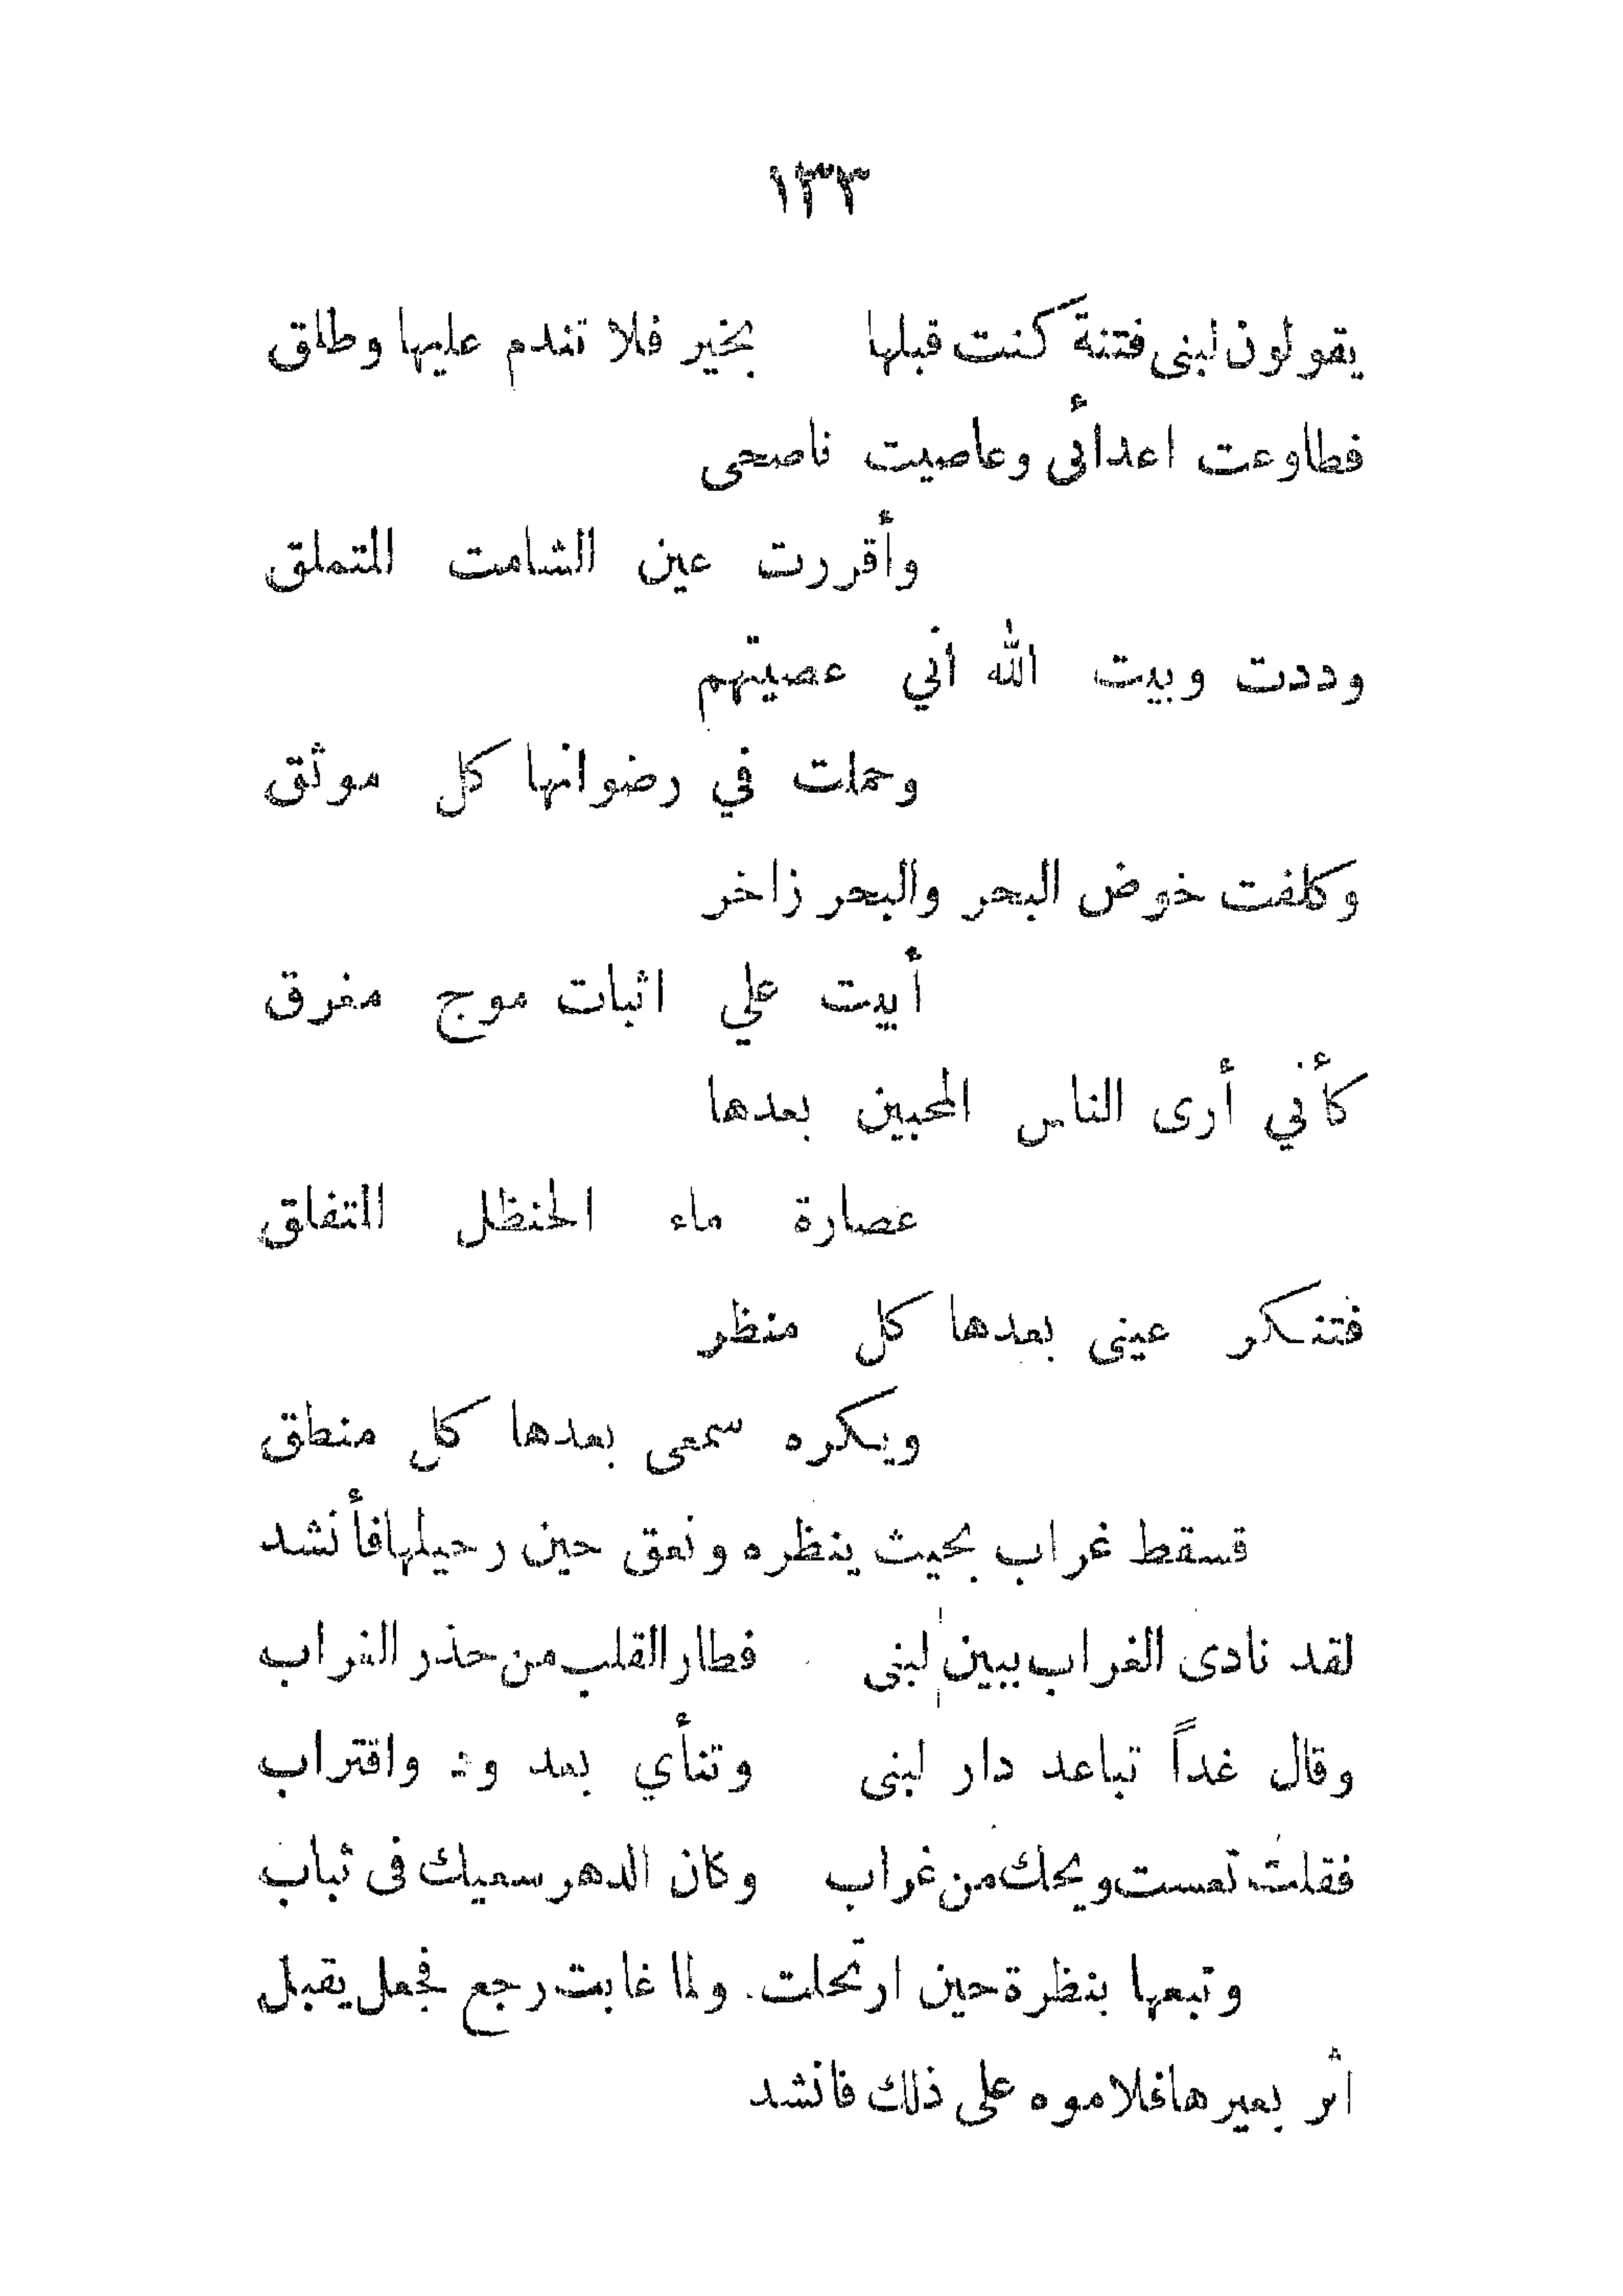 ١٣٣
يقولون لبنى فتنة كنت قبلها بخير فلا تندم عليها وطلق
فطاوعت اعدائي وعاصيت ناصحى
وأقررت عين الشامت المتملق
وددت وبيت الله أني عصيتهم
وحملت في رضوانها كل موثق
وكلفت خوض البحر والبحر زاخر
أبيت علي اثبات موج مغرق
كأني أرى الناس المحبين بعدها
عصارة ماء الحنظل المتفلق
فتنكر عينى بعدها كل منظر
ويكره سمعى بعدها كل منطق
فسقط غراب بحيث ينظره ونعق حين رحيلها فأنشد
لقد نادى الغراب ببين لبنى فطار القلب من حذر الغراب
وقال غداً تباعد دار لبنى وتنأي بعد ود واقتراب
فقلت تعست ويحك من غراب وكان الدهر سعيك فى تباب
وتبعها بنظرة حين ارتحلت. ولما غابت رجع فجعل يقبل
اثر بعيرها فلاموه على ذلك فانشد